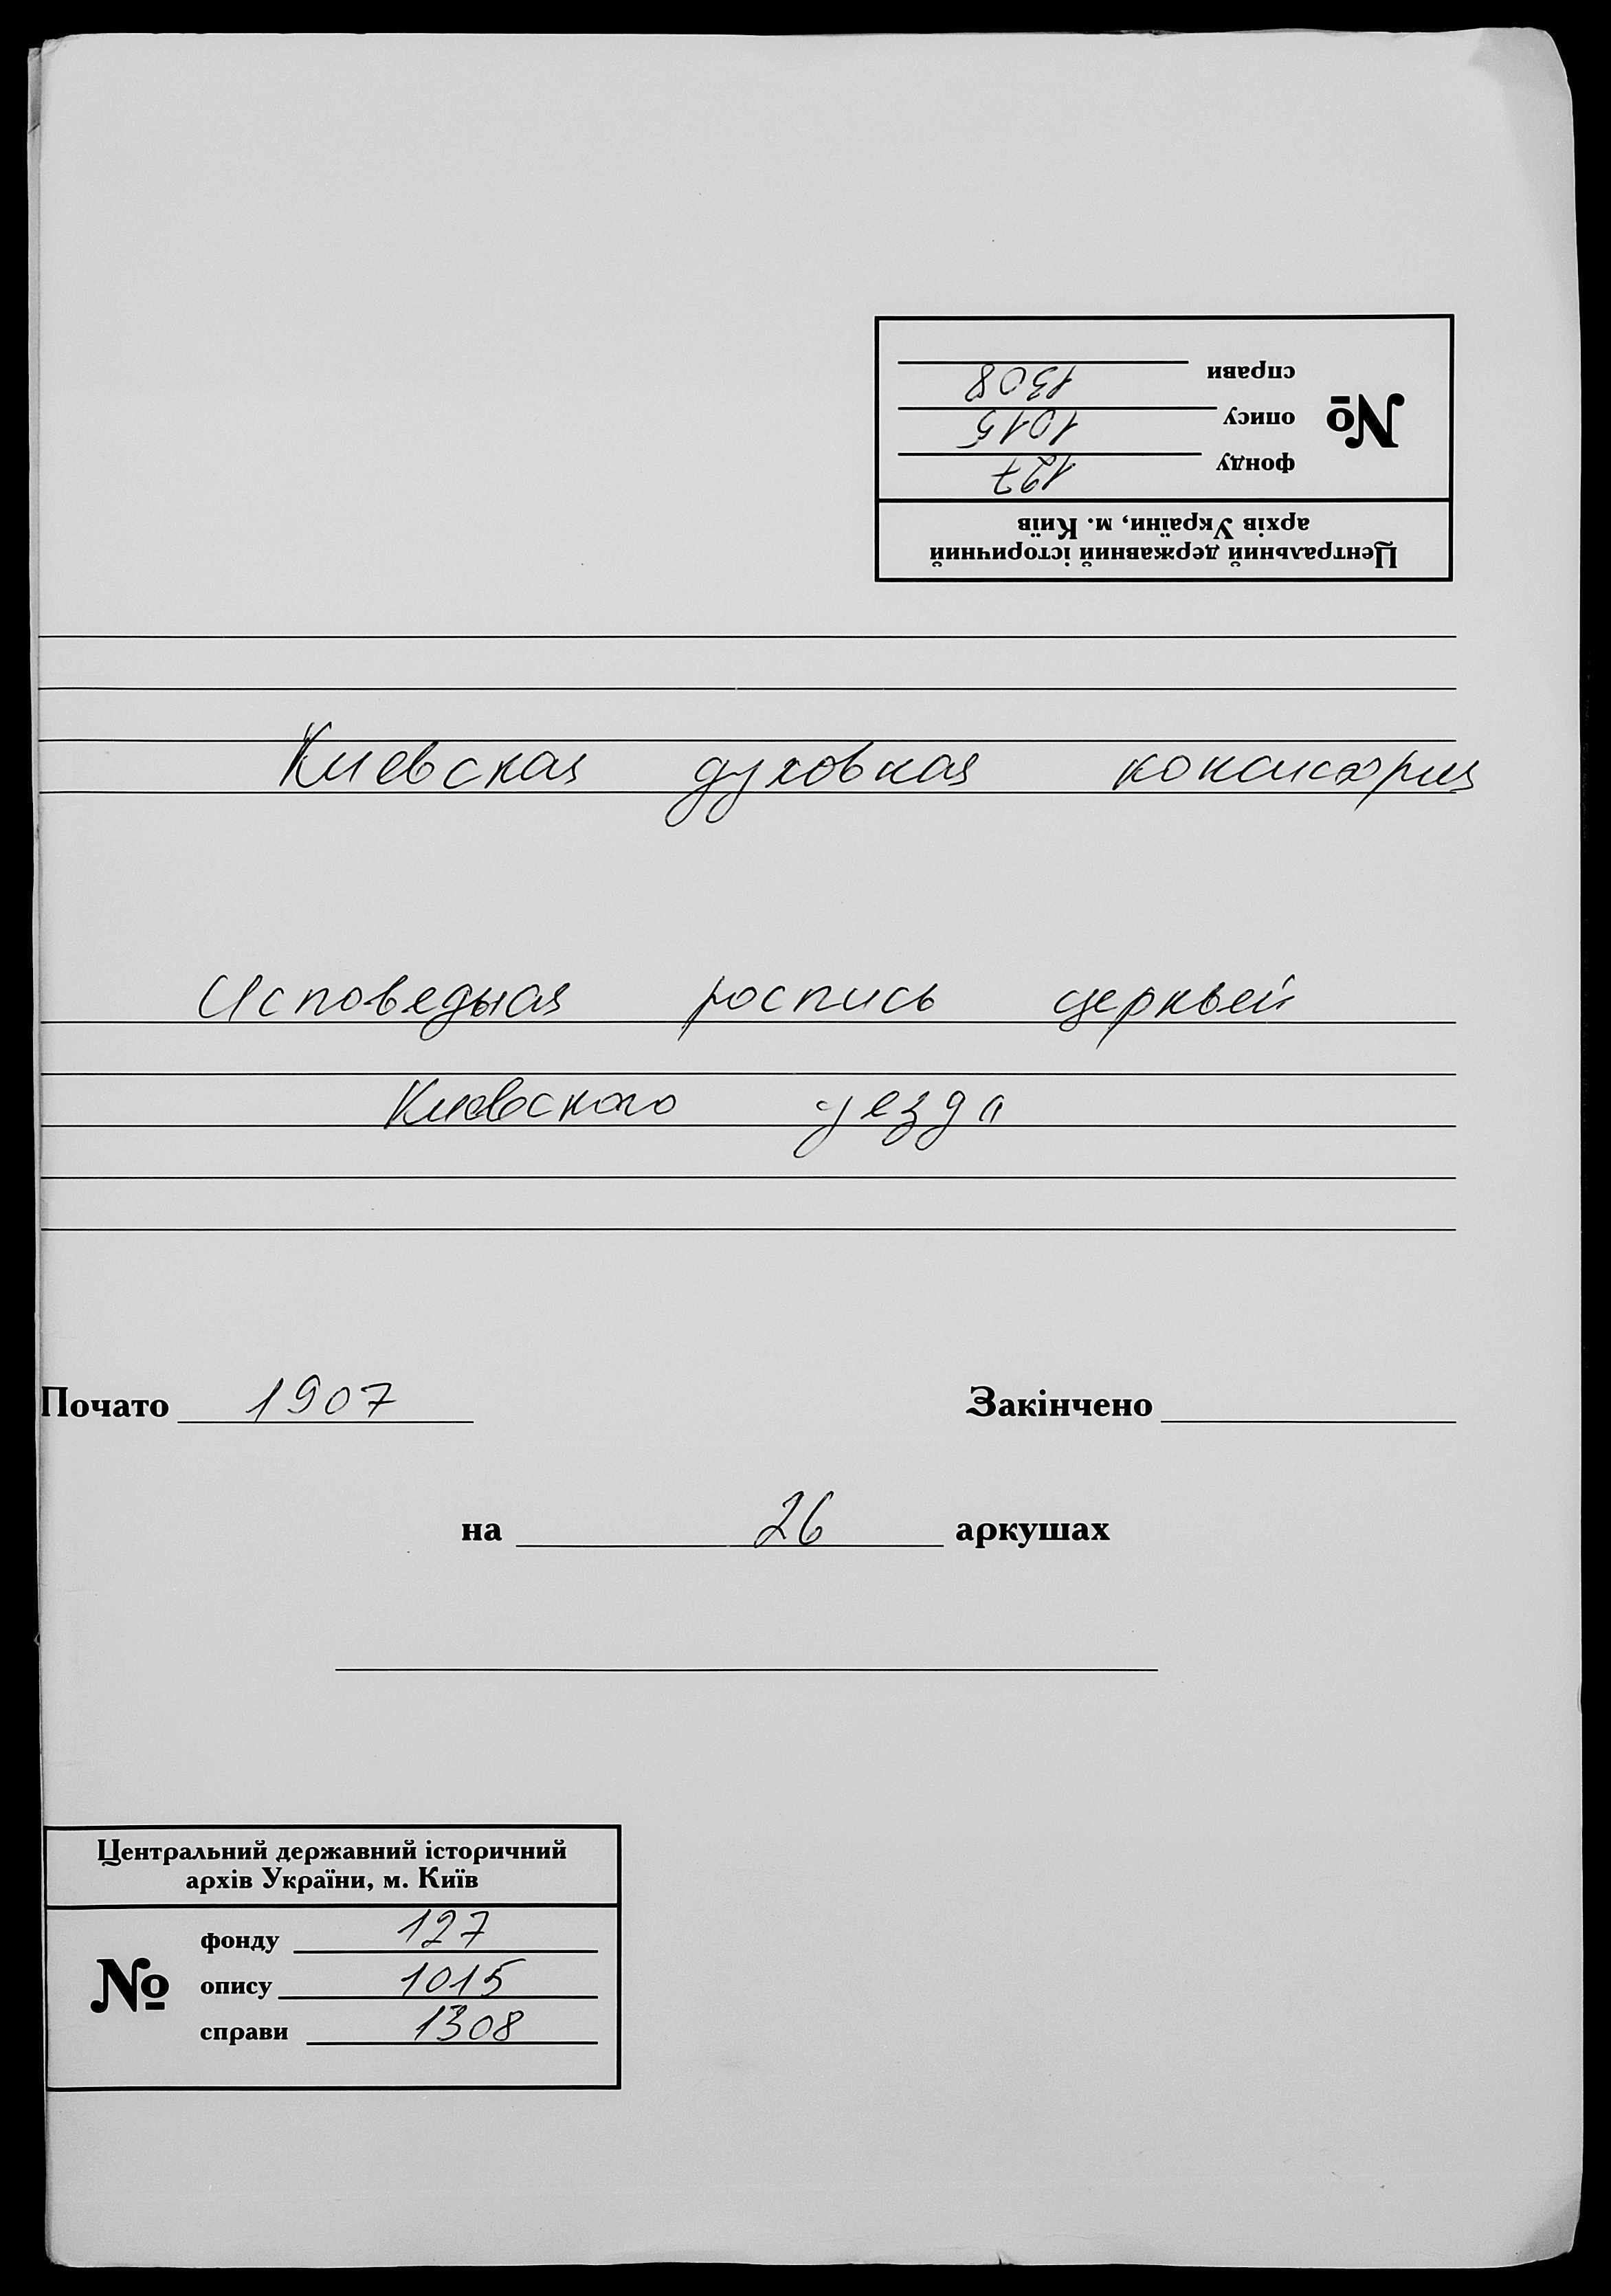 Центральний державний історичний
архів України, м. Київ
№
фонду 127
опису 1015
справи 1308
Киевская духовная консистория
Исповедная роспись церквей
Киевского уезда
Почато 1907 Закінчено
на 26 аркушах
Центральний державний історичний
архів України, м. Київ
№
фонду 127
опису 1015
справи 1308